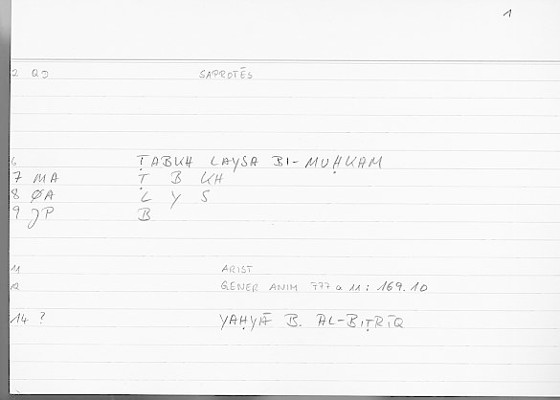 1
2 QD SAPROTĒS
6 ṬABKH LAYSA BI-MUḤKAM
7 MA Ṭ B KH
8 ØA L Y S
9 JP B
11 ARIST
12 GENER ANIM 777 a 11: 169.10
14 ? YAḤYĀ B. AL-BIṬRĪQ